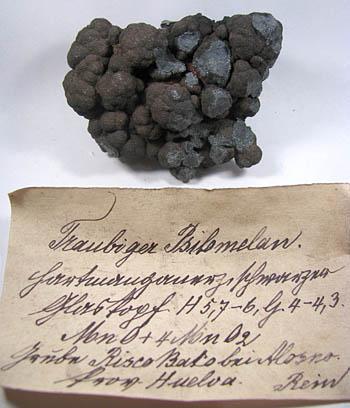 Traubiger Psilomelan.
Hartmanganerz, schwarzer
Glaskopf. H 5,7-6, G. 4-4,3.
MnO + 4MnO2
Grube Risco Bato bei Alosno.
Prov. Huelva. Rein